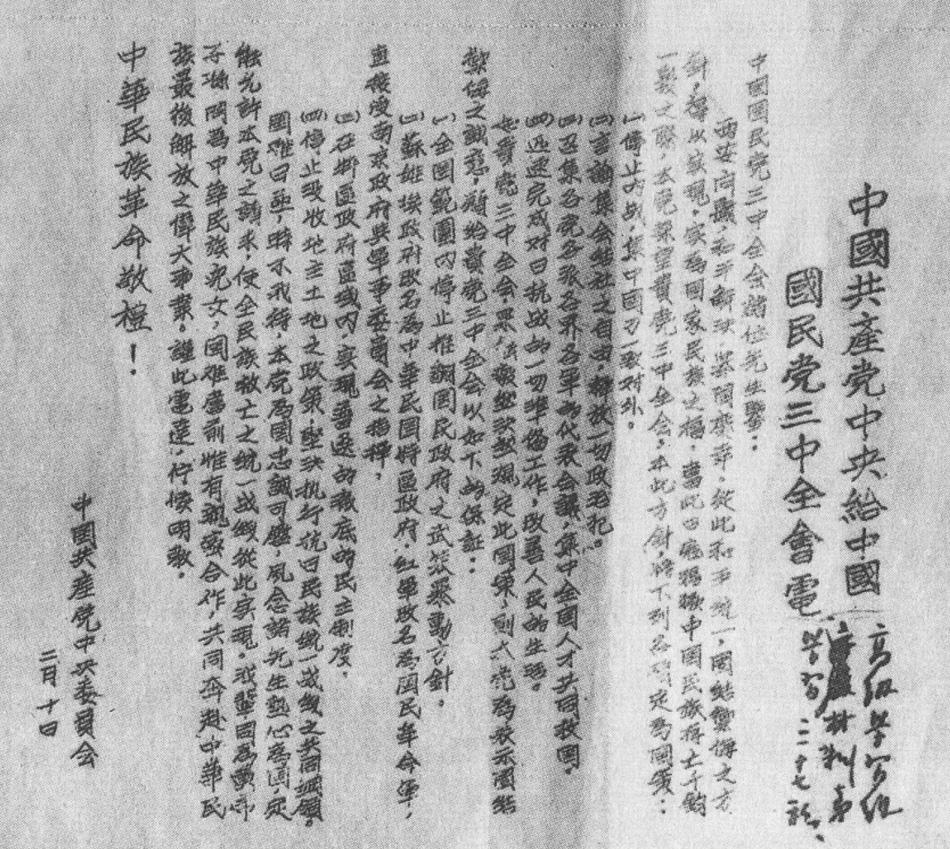 中國共產党中央給中國
國民党三中全會電
高级学习组
材料第
学习 二十七號、
中國國民党三中全会諸位先生鑒：
西安问题和平解决，举国慶幸，從此和平統一，團結禦侮之方
針，得以实現，实為國家民族之福。當此日寇猖獗，中國民族存亡千鈞
一髮之際，本党深望貴党三中全会，本此方針，將下列各項定為國策：
(一)停止内战，集中國力，一致对外。
(二)言論集会結社之自由，釋放一切政治犯。
(三)召集各党各派各界各軍的代表会議，集中全國人才共同救國。
(四)迅速完成对日抗战的一切準備工作，改善人民的生活。
如貴党三中全会果能毅然决然規定此國策，則本党為表示團結
禦侮之誠意，願給貴党三中全会以如下的保証：
(一)全國範圍内停止推翻國民政府之武装暴動方針。
(二)蘇維埃政府改名為中華民國特區政府，紅軍改名為國民革命軍，
直接受南京政府與軍事委員会之指揮。
(三)在特區政府區域内，实現普选的徹底的民主制度。
(四)停止没收地主土地之政策，堅决执行抗日民族統一战線之共同綱領。
國难日亟，時不我待，本党為國忠誠可鑒，夙念諸先生熱心為國，定
能允許本党之請求，使全民族救亡之統一战線從此实現。我輩同為黃帝
子孫，同為中華民族兒女，國难當前，惟有親密合作，共同奔赴中華民
族最後解放之偉大事業。謹此電達，佇候明教。
中華民族革命敬禮！
中國共產党中央委員会
二月十日